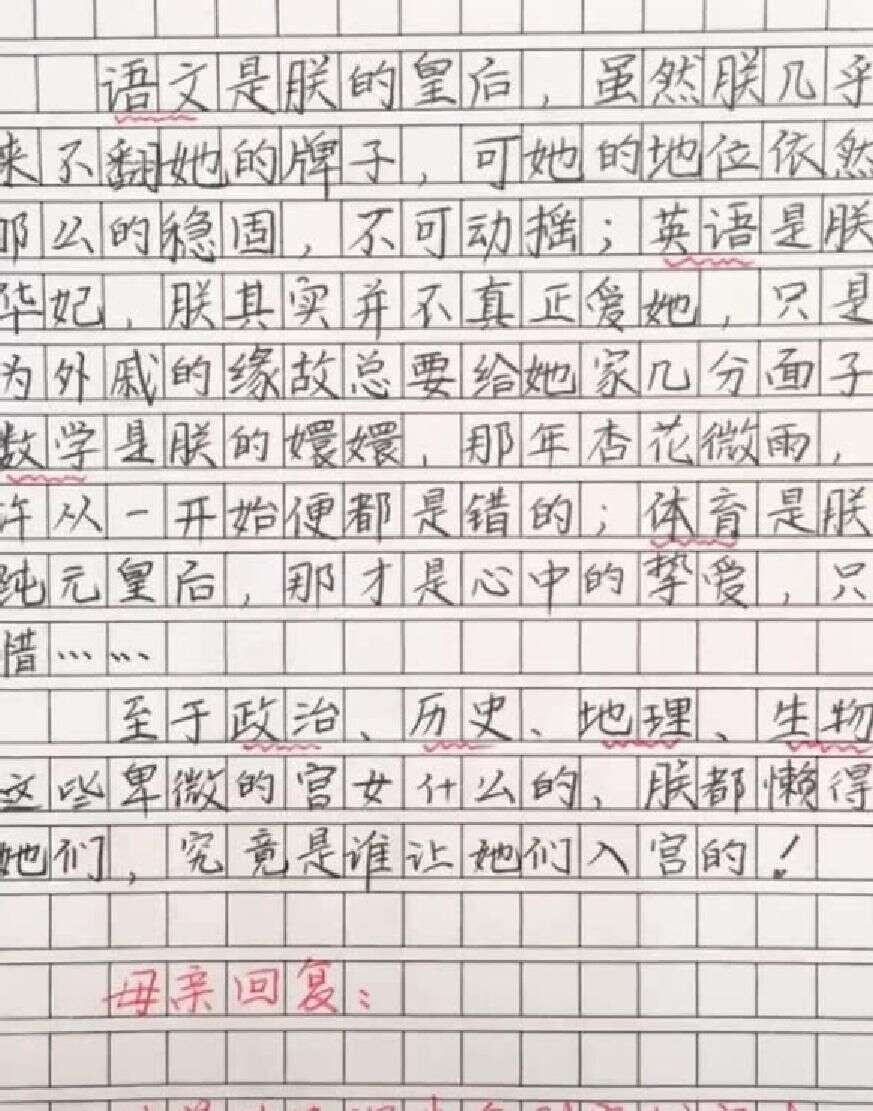 语文是朕的皇后，虽然朕几乎
来不翻她的牌子，可她的地位依然
那么的稳固，不可动摇；英语是朕
华妃，朕其实并不真正爱她，只是
为外戚的缘故总要给她家几分面子
数学是朕的嬛嬛，那年杏花微雨，
许从一开始便都是错的；体育是朕
纯元皇后，那才是心中的挚爱，只
惜……
至于政治、历史、地理、生物
这些卑微的宫女什么的，朕都懒得
她们，究竟是谁让她们入宫的！
母亲回复：